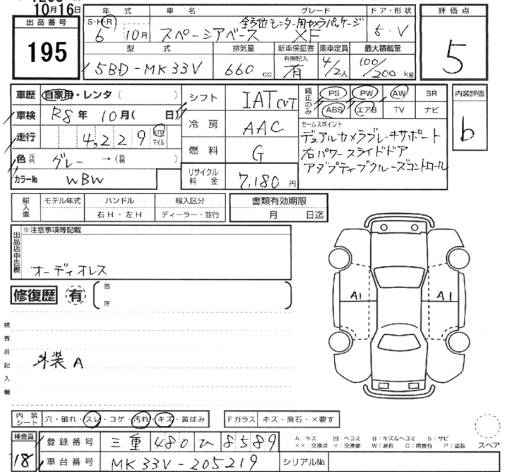 10月16日
出品番号 195
年式 車名 グレード ドア・形状 評価点
S・H・R 6年 10月 スペーシアベース 全方位モニター用カメラパッケージ XF 5・V 5
型式 排気量 新車保証書 乗車定員 最大積載量
有側記入
5BD-MK33V 660cc 有 4/2人 100/200kg
車歴 自家用・レンタ( ) シフト IAT CVT 純正のみ PS PW AW SR 内装評価
車検 R8年10月( 日) ABS エアB TV ナビ b
冷房 AAC
走行 4,229 km マイル
セールスポイント
デュアルカメラブレーキサポート
右パワースライドドア
アダプティブクルーズコントロール
燃料 G
色 元 グレー →( 色替)
カラーNo. WBW
リサイクル料金 7,180円
輸入車 モデル年式 ハンドル 輸入区分 書類有効期限
右H・左H ディーラー・並行 月 日迄
出品店申告欄 ※注意事項等記載
オーディオレス
修復歴 有 箇所
A1 A1
検査員記入欄
外装A
内装シート 穴・破れ・スレ・コゲ・汚れ・キズ・黄ばみ Fガラス キズ・飛石・×要す
検査員 18
登録番号 三重 480 ひ 8589
A:キズ U:ヘコミ B:キズ&ヘコミ S:サビ
××:交換済 ×:交換要 W:波有 C:腐食有 P:塗装 スペア
車台番号 MK33V-205219 シリアルNo.